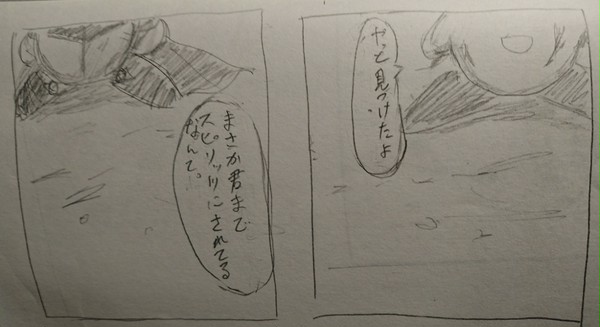 やっと見つけたよ
まさか君まで
スピリッツにされてる
なんて。